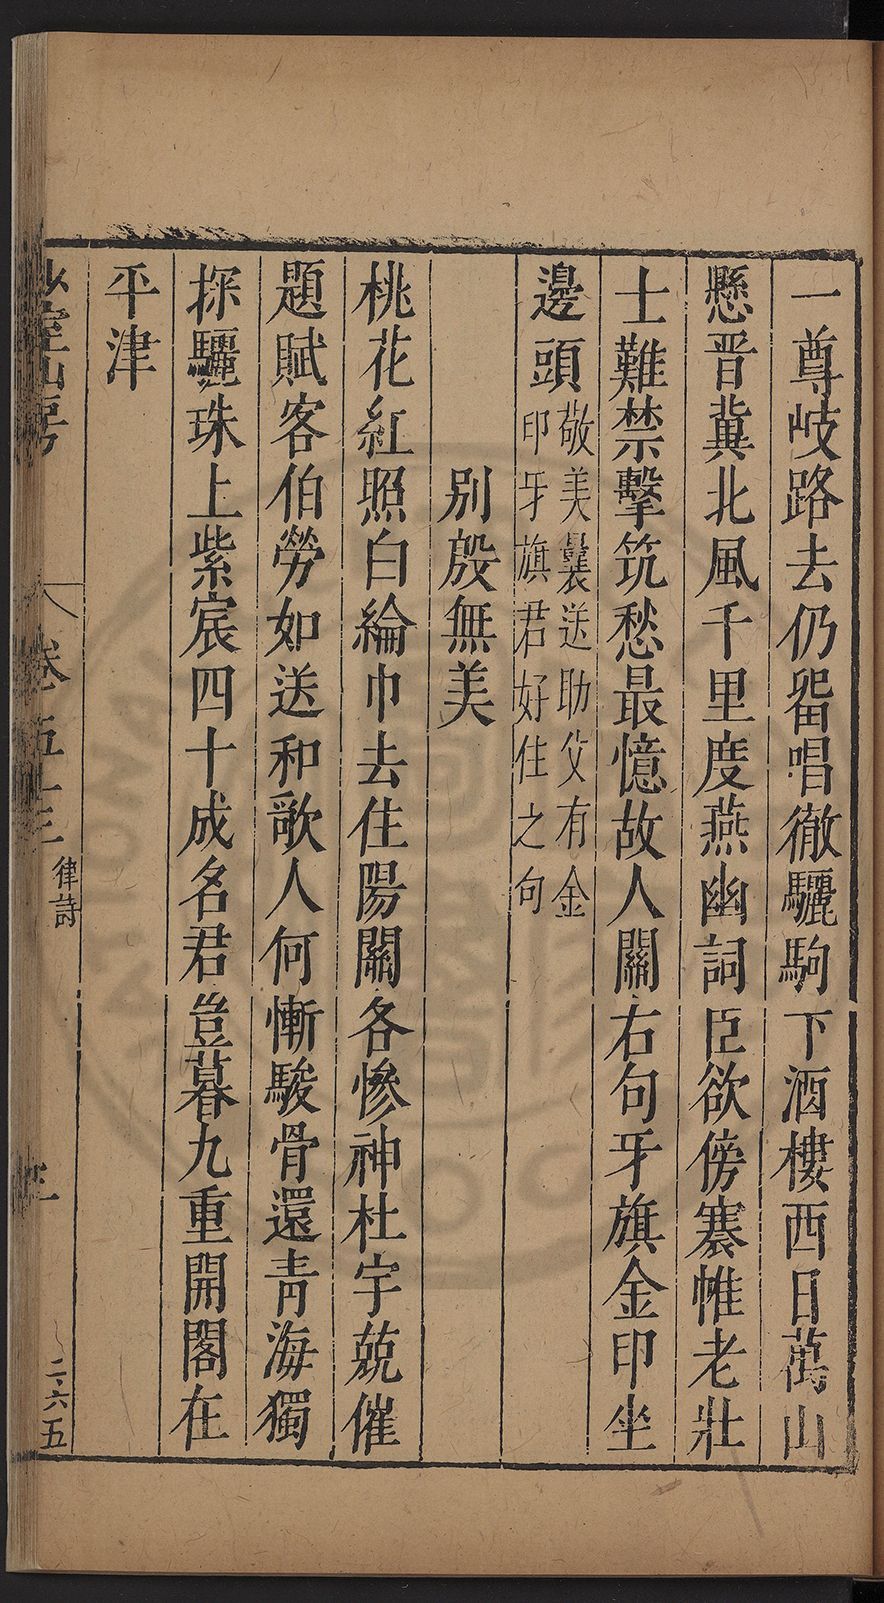 一尊岐路去仍畱唱徹驪駒下酒樓西日萬山
懸晋冀北風千里度燕幽詞臣欲傍褰帷老壯
士難禁擊筑愁最憶故人關右句牙旗金印坐
邊頭敬美曩送助父有金
印牙旗君好住之句
別殷無美
桃花紅照白綸巾去住陽關各慘神杜宇兢催
題賦客伯勞如送和歌人何慚駿骨還青海獨
探驪珠上紫宸四十成名君豈暮九重開閣在
平津
少室山房
卷五十三
律詩
三
二六五